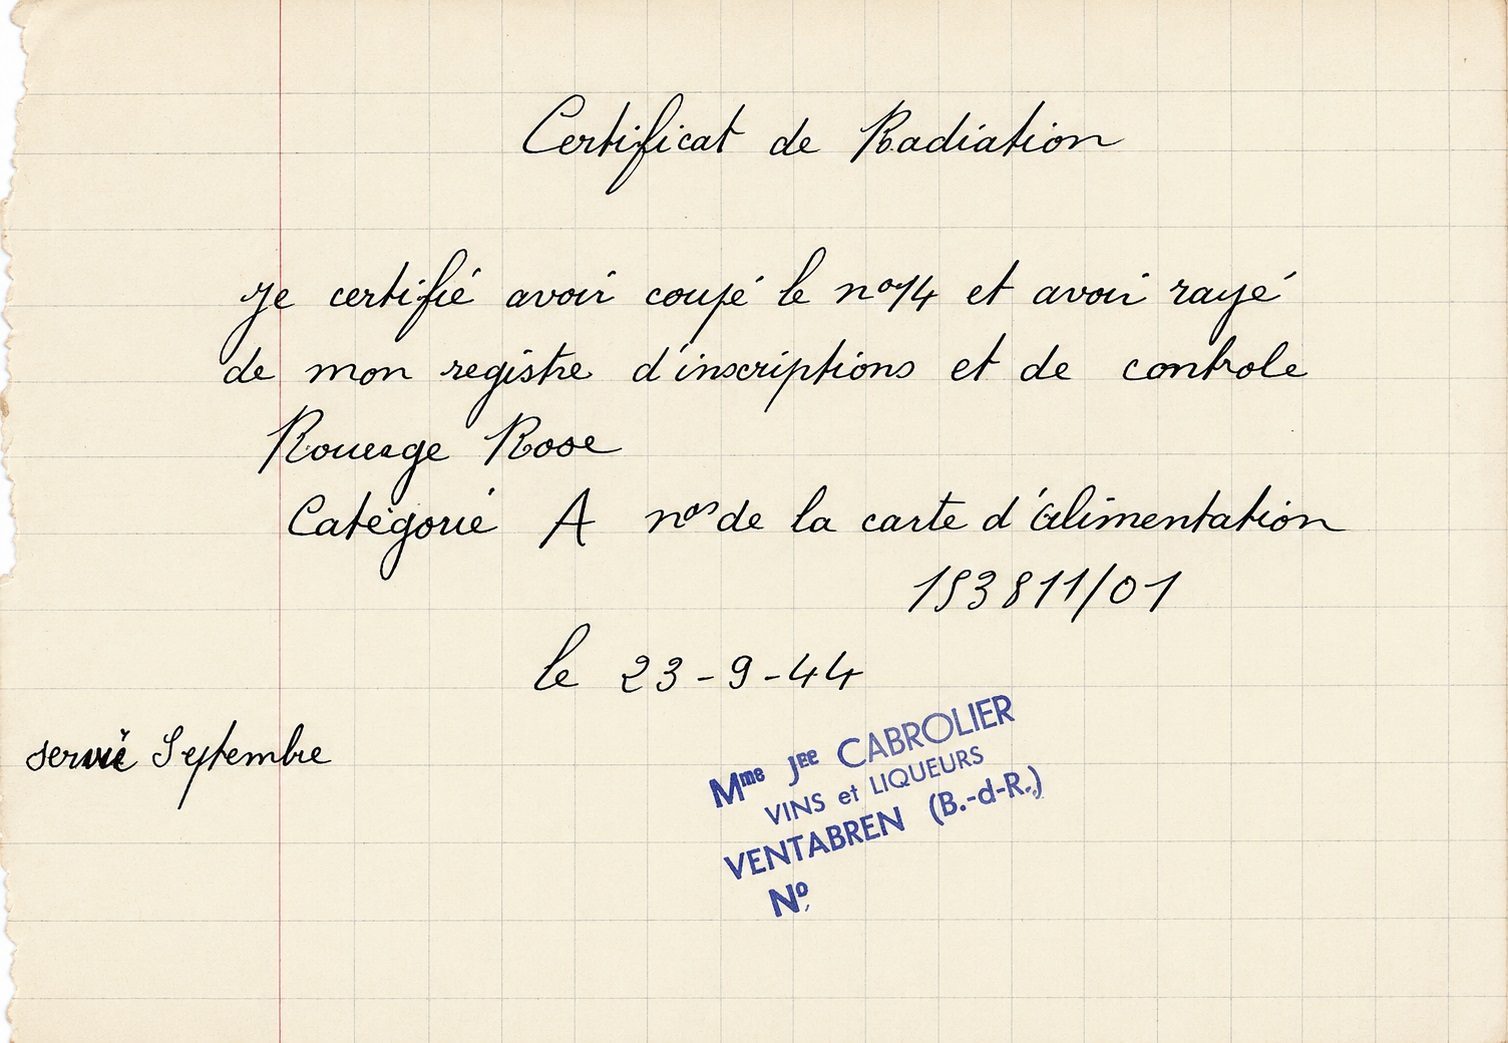 Certificat de Radiation
Je certifié avoir coupé le nº 14 et avoir rayé
de mon registre d'inscriptions et de controle
Roueage Rose
Catégorié A nos de la carte d'alimentation
153811/01
le 23-9-44
servie Septembre
Mme Jee CABROLIER
VINS et LIQUEURS
VENTABREN (B.-d-R.)
Nº